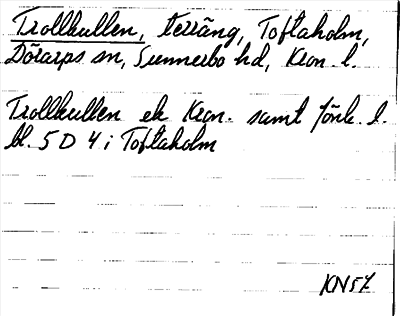 Trollkullen, terräng, Toftaholm,
Dörarps sn, Sunnerbo hd, Kron. l.
Trollkullen ek Kron. samt Jönk. l.
bl. 5 D 4 i Toftaholm
KN57